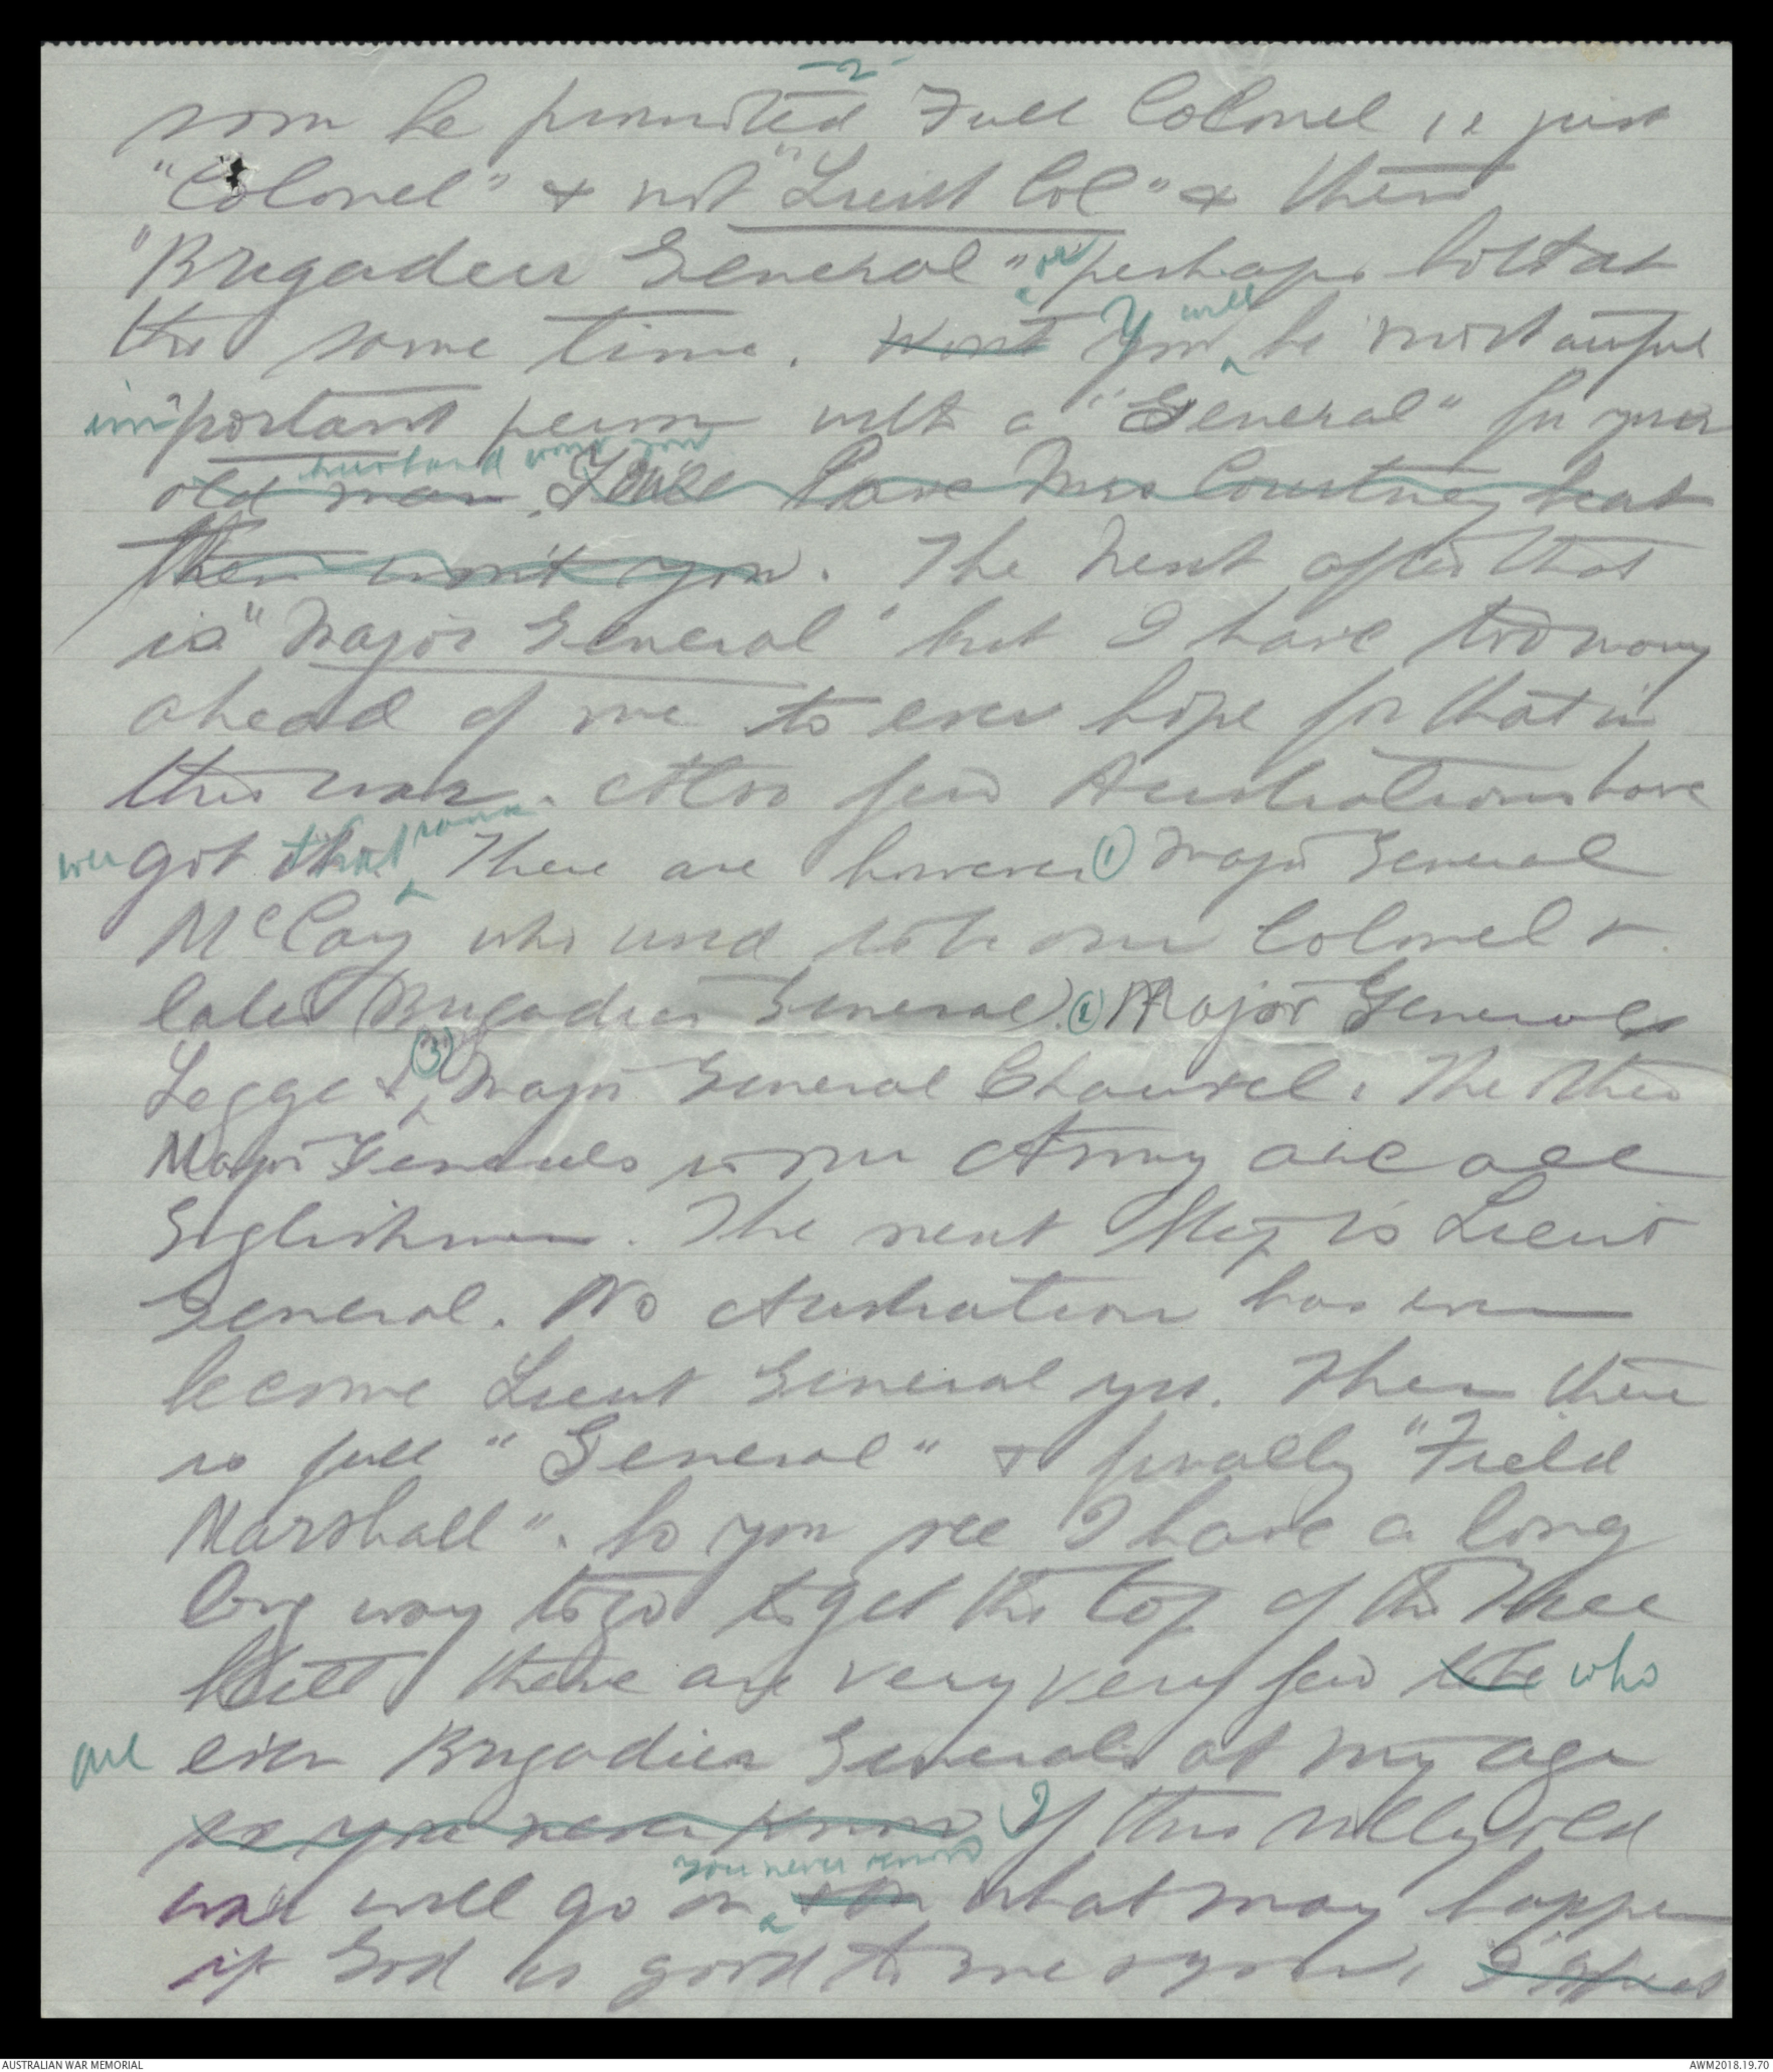 -2-
soon be promoted Full Colonel ie just
"Colonel" & not "Lieut Col" & then
"Brigadier General" or perhaps both at
the same time. Wont You will be most awful
important person with a "General" for your
old man husband wont you You'll have Mrs Courtney beat
then won't you. The next after that
is "Major General" but I have too many
ahead of me to ever hope for that in
this war. Also few Australians have
ever got that rank There are however (1) Major General
McCay who used to be our Colonel &
later Brigadier General. (2) Major General
Legge & (3) Major General Chauvel. The other
Major Generals in our Army are all
Englishmen. The next step is Lieut
General. No Australian has ever
become Lieut General yet. Then there
is full "General" & finally "Field
Marshall". So you see I have a long
long way to go to get the top of the Tree
there are very very few who
are even Brigadier Generals at my age
so you never know If this silly old
war will go on you never know what may happen
if God is good to me & you. I
AUSTRALIAN WAR MEMORIAL
AWM2018.19.70